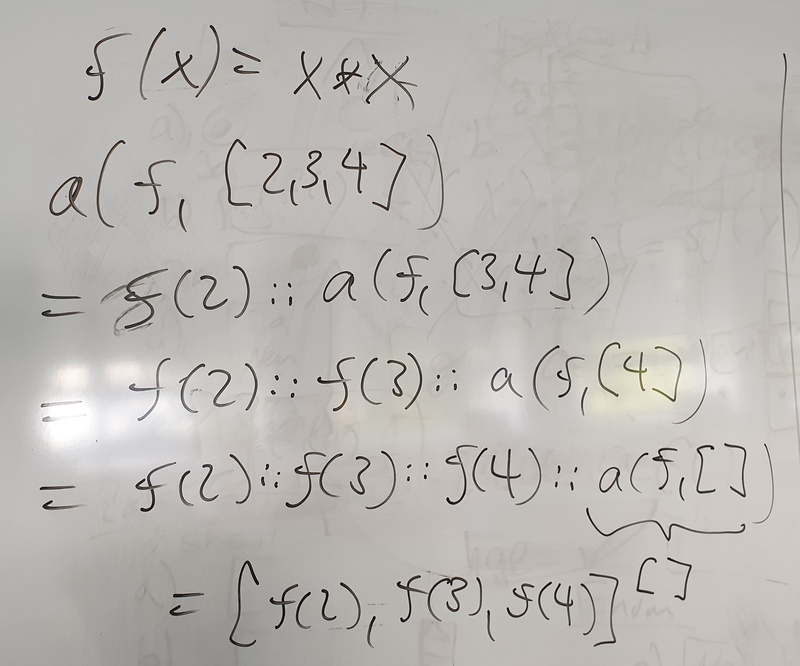 f(x) = x*x
a(f, [2,3,4])
= f(2) :: a(f, [3,4])
= f(2) :: f(3) :: a(f, [4])
= f(2) :: f(3) :: f(4) :: a(f, [])
[]
= [f(2), f(3), f(4)]